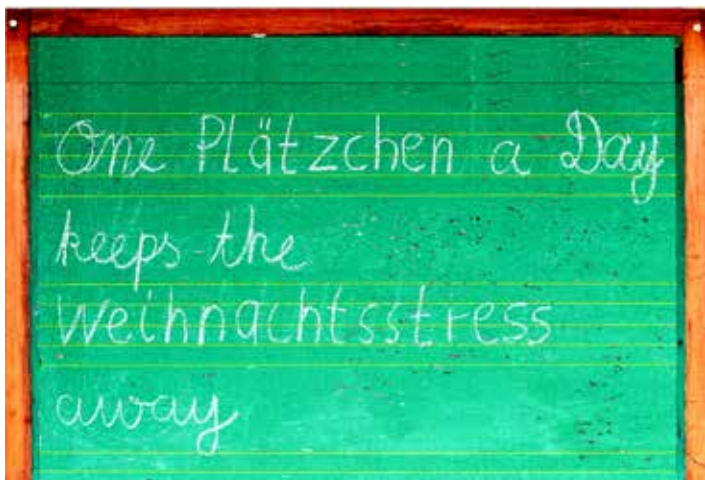 One Plätzchen a Day
keeps the
Weihnachtsstress
away